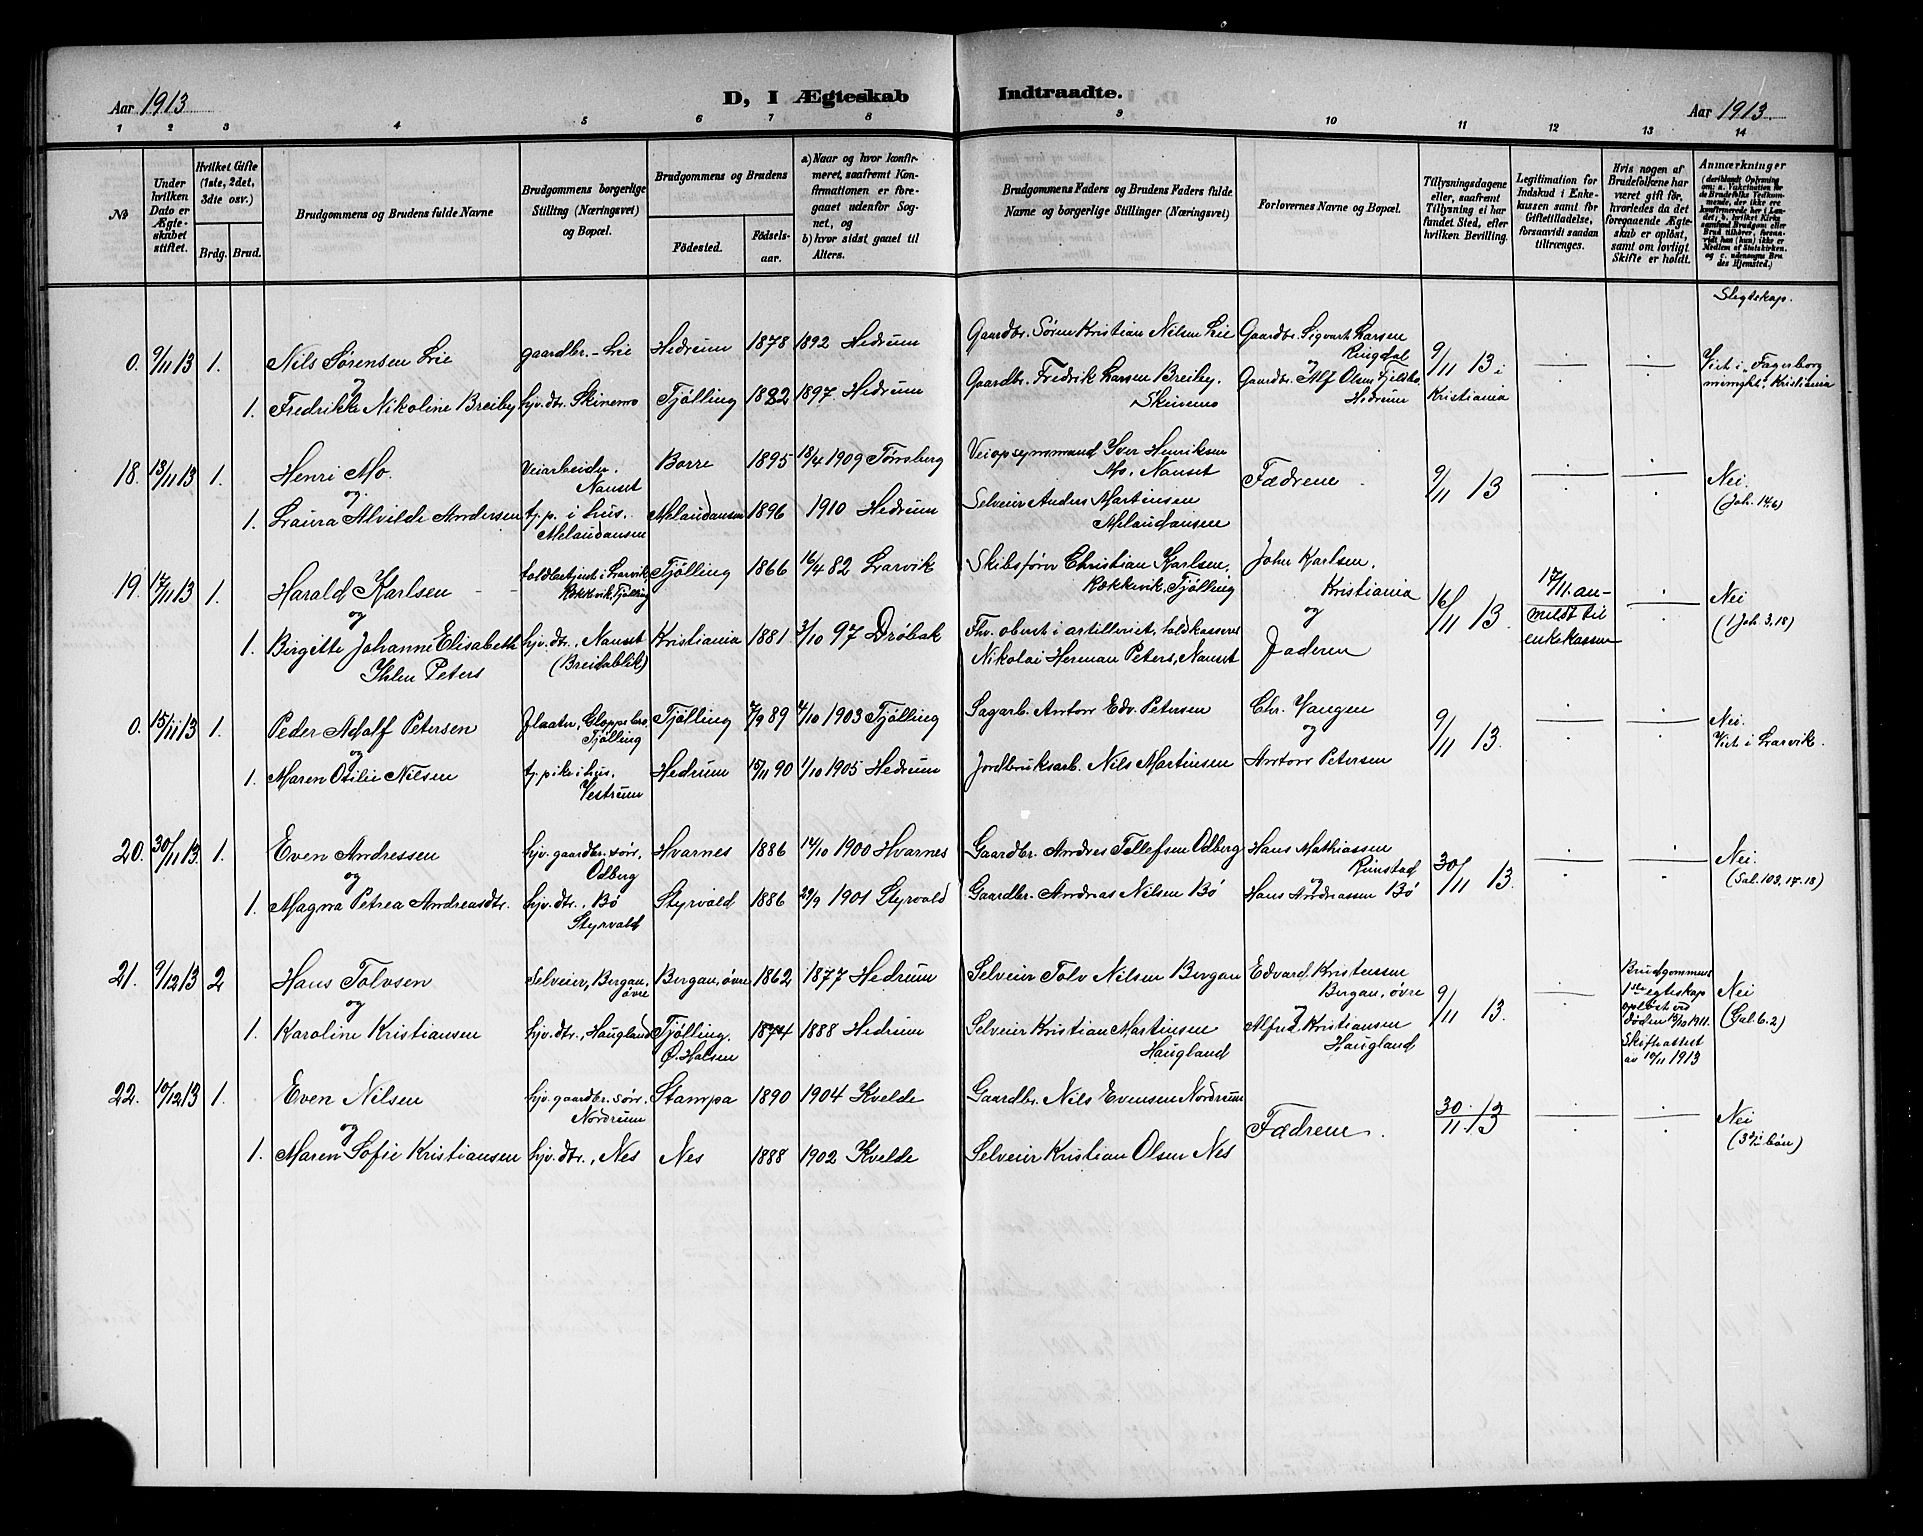 Aar 1913
D, I Ægteskab Indtraadte.
Aar 1913.
1 2 3 4 5 6 7 8 9 10 11 12 13 14
No
Under hvilken Dato er Ægteskabet stiftet.
Hvilket Gifte (1ste, 2det, 3die osv.)
Brdg. Brud.
Brudgommens og Brudens fulde Navne
Brudgommens borgerlige Stilling (Næringsvei) og Bopæl.
Brudgommens og Brudens
Födested. Födselsaar.
a) Naar og hvor konfirmeret, saafremt Konfirmationen er foregaaet udenfor Sognet, og
b) hvor sidst gaaet til Alters.
Brudgommens Faders og Brudens Faders fulde Navne og borgerlige Stillinger (Næringsvei)
Forlovernes Navne og Bopæl.
Tillysningsdagene eller, saafremt Tillysning ei har fundet Sted, efter hvilken Bevilling.
Legitimation for Indskud i Enkekassen samt for Giftetilladelse, forsaavidt saadan tiltrænges.
Hvis nogen af Brudefolkene har været gift før, hvorledes da det foregaaende Ægteskab er oplöst, samt om lovligt Skifte er holdt.
Anmærkninger
Slegtskap.
0. 9/11 13 1. Nils Sørensen Lie gaardbr. - Lie Hedrum 1878 1892 Hedrum Gaardbr. Søren Kristian Nilsen Lie Gaardbr. Sigvart Larsen Ringdal 9/11 13 i Kristiania Viet i "Fagerborg menight." Kristiania
og
1. Fredrikke Nikoline Breiby hjv. dtr. Skinemo Tjølling 1882 1897 Hedrum Gaardbr. Fredrik Larsen Breiby, Skinemo og Gaardbr. Alf Olsen Fjeldbo, Hedrum
18. 13/11 13 1. Henri Mo Veiarbeider. Nanset Borre 1895 18/4 1909 Tønsberg Veiopsynsmand Iver Henriksen Mo, Nanset Fædrene. 9/11 13 Nei. (Joh. 14.6)
og
1. Laura Alvilde Andersen tj. p. i hus. Melaudansen Melaudansen 1896 1910 Hedrum Selveier Anders Martinsen Melaudansen
19. 17/11 13 1. Harald Karlsen toldbetjent i Larvik, Rækkevik, Tjølling Tjølling 1866 16/4 82 Larvik Skibsfører Christian Karlsen, Rækkevik, Tjølling John Karlsen, Kristiania 16/11 13. 17/11. anmeldt til enkekassen Nei (1 Joh. 3.18)
og og
1. Birgitte Johanne Elisabeth Ihlen Peters hjv. dtr., Nanset (Breidablik) Kristiania 1881 3/10 97 Drøbak Fhv. oberst i artilleriet, toldkasserer Nikolai Herman Peters, Nanset Faderen
0. 15/11 13 1. Peder Adolf Petersen fløater, Gloppebro, Tjølling Tjølling 7/9 89 4/10 1903 Tjølling Sagarb. Anton Edv. Petersen Chr. Vangen 9/11 13. Nei. Viet i Larvik.
og og
1. Maren Otilie Nilsen tj. pike i hus, Vestrum Hedrum 15/11 90 1/10 1905 Hedrum Jordbruksarb. Nils Martinsen Anton Petersen
20. 30/11 13. 1. Even Andressen hjv. gaardbr. søn, Odberg Hvarnes 1886 14/10 1900 Hvarnes Gaardbr. Andres Tollefsen Odberg Hans Mathiassen Rimstad 30/11 13. Nei (Sal. 103. 17. 18)
og og
1. Magna Petrea Andreasdtr. hjv. dtr., Bø Styrvold Styrvold 1886 29/9 1901 Styrvold Gaardbr. Andreas Nilsen Bø Hans Andreassen Bø
21. 9/12 13 2 Hans Tolvsen Selveier, Bergan, øvre Bergan, øvre 1862 1877 Hedrum Selveier Tolv Nilsen Bergan Edvard Kristensen Bergan, øvre 9/11 13. Brudgommens 1ste egteskap opløst ved døden 13/10 1911. Skifteattest av 10/11 1913 Nei (Gal. 6.2)
og og
1. Karoline Kristiansen hjv. dtr., Haugland Tjølling, Ø. Halsen 1874 1888 Hedrum Selveier Kristian Martinsen Haugland Alfred Kristiansen Haugland
22. 10/12 13 1. Even Nilsen hjv. gaardbr. søn, Nordrum Stampa 1890 1904 Kvelde Gaardbr. Nils Evensen Nordrum Fædrene. 30/11 13 Nei (3die bøn)
og
1. Maren Sofie Kristiansen hjv. dtr., Nes Nes 1888 1902 Kvelde Selveier Kristian Olsen Nes